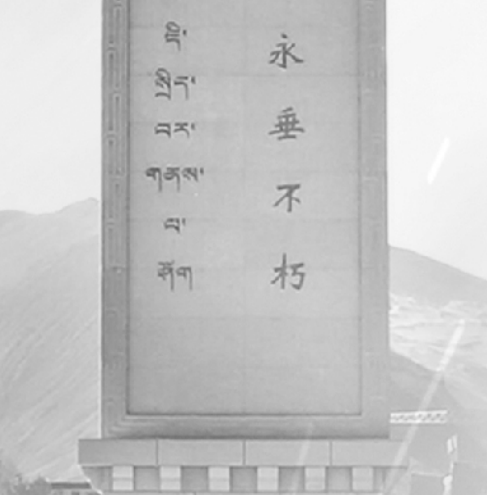 ཇི་
སྲིད་
བར་
གནས་
པ་
ཤོག
永垂不朽